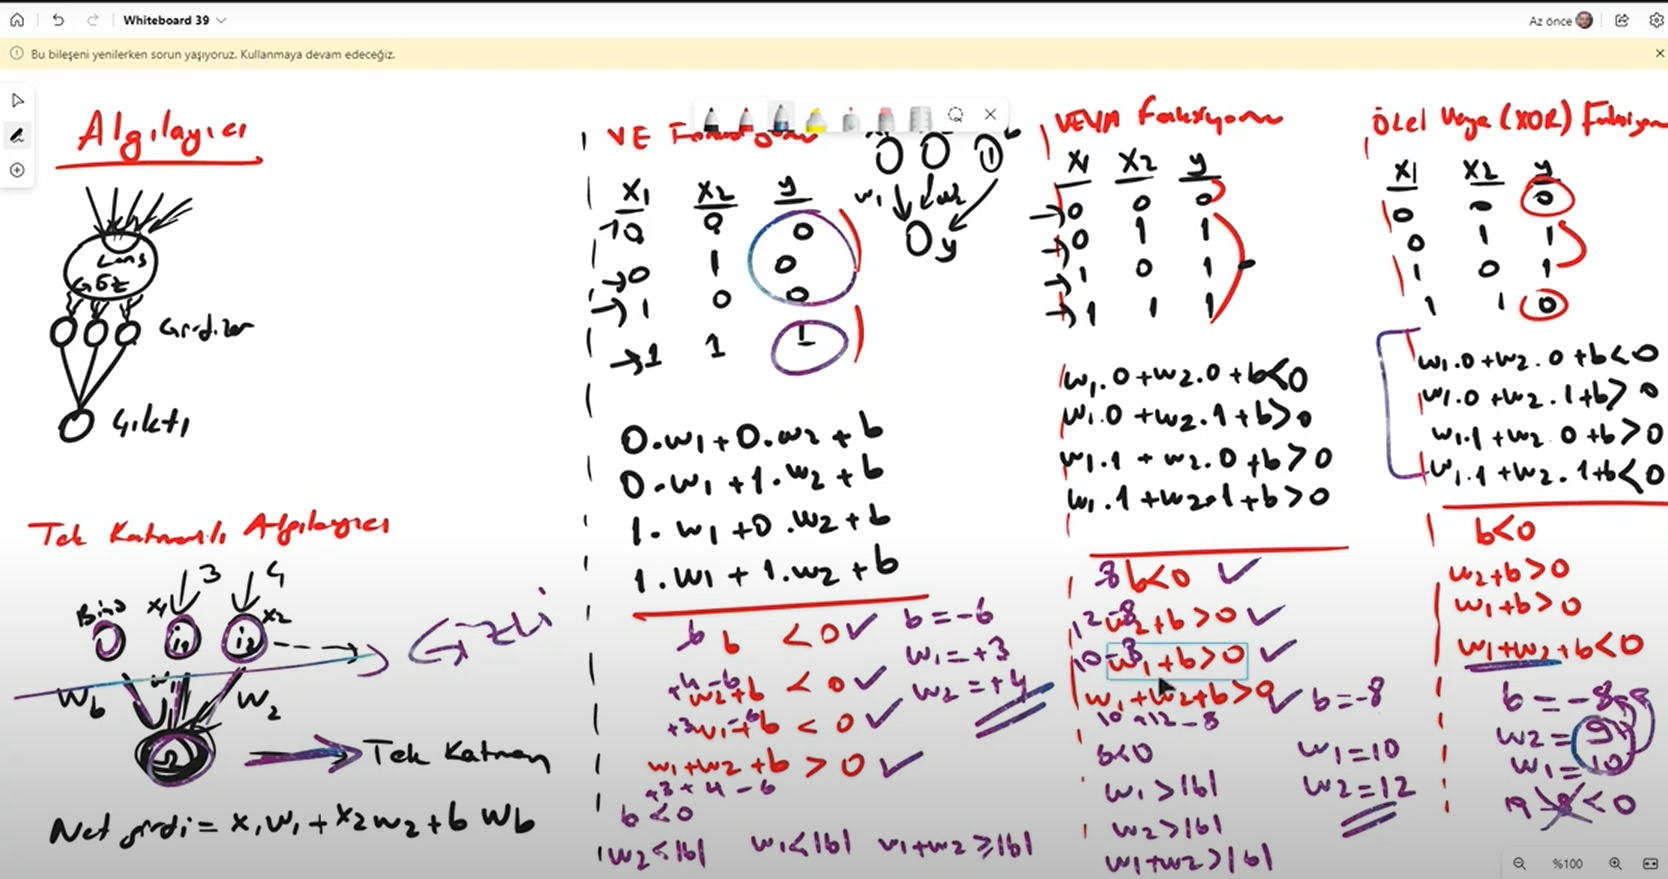 Whiteboard 39
Az önce
Bu bileşeni yenilerken sorun yaşıyoruz. Kullanmaya devam edeceğiz.
Algılayıcı
Lens
Göz
Girdiler
Çıktı
Tek Katmanlı Algılayıcı
3 4
x1 x2
i1 i2
Wb W1 W2
Ω
Tek Katman
Net girdi = x1w1 + x2w2 + b wb
VE
x1 x2 y
0 0 0
0 1 0
1 0 0
1 1 1
1 b
w1 w2
y
0.w1 + 0.w2 + b
0.w1 + 1.w2 + b
1.w1 + 0.w2 + b
1.w1 + 1.w2 + b
-6
b < 0 ✓
+4 -6
w2+b < 0 ✓
+3 -6
w1+b < 0 ✓
w1+w2+b > 0 ✓
+3 + 4 - 6
b = -6
w1 = +3
w2 = +4
b < 0
w2 < |b| w1 < |b| w1+w2 ≥ |b|
VEYA Fonksiyonu
x1 x2 y
0 0 0
0 1 1
1 0 1
1 1 1
w1.0 + w2.0 + b < 0
w1.0 + w2.1 + b > 0
w1.1 + w2.0 + b > 0
w1.1 + w2.1 + b > 0
-8 b<0 ✓
12-8
w2+b>0 ✓
10-8
w1+b>0 ✓
w1+w2+b>0 ✓
10+12-8
b = -8
w1 = 10
w2 = 12
b<0
w1 > |b|
w2 > |b|
w1+w2 > |b|
Özel Veya (XOR) Fonksiyon
x1 x2 y
0 0 0
0 1 1
1 0 1
1 1 0
w1.0 + w2.0 + b < 0
w1.0 + w2.1 + b > 0
w1.1 + w2.0 + b > 0
w1.1 + w2.1 + b < 0
b<0
w2+b>0
w1+b>0
w1+w2+b<0
b = -8
w2 = 9
w1 = 10
19 - 8 < 0
%100